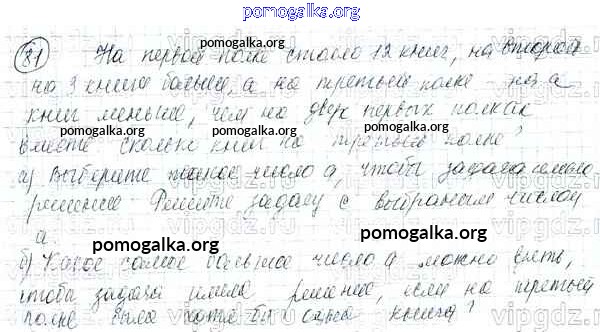 pomogalka.org
81 На первой полке стояло 12 книг, на второй
на 3 книги больше, а на третьей полке на а
книг меньше, чем на двух первых полках
вместе сколько книг на третьей полке?
а) Выберите такое число а, чтобы задача имела
решение. Решите задачу с выбраным числом
а.
pomogalka.org
б) Какое самое большое число а можно взять,
чтобы задача имела решение, если на третьей
полке была хотя бы одна книга?
pomogalka.org